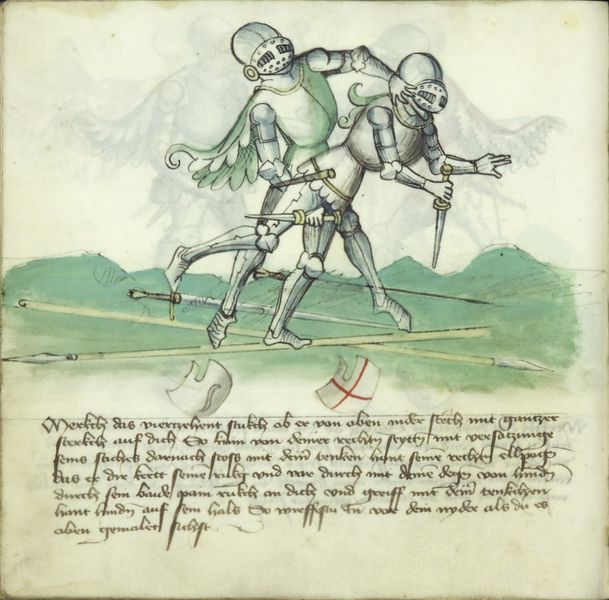 Merkch das vierzehent stukch ob er von oben nider stech mit gantzer
sterkch auf dich So kum von deiner rechten seytten mit versatzunge
seins stichs darnach stoss mit deiner tenken hant seine rechten ellpogen
das er dir kert seinen rukg vnd var durch mit deinem degen von hinden
durch sein baide pain rukch an dich vnd greiff mit deiner tenkchen
hant hinden auf sein hals So wirffestu In vor dein nyder als du es
oben gemalet sichst